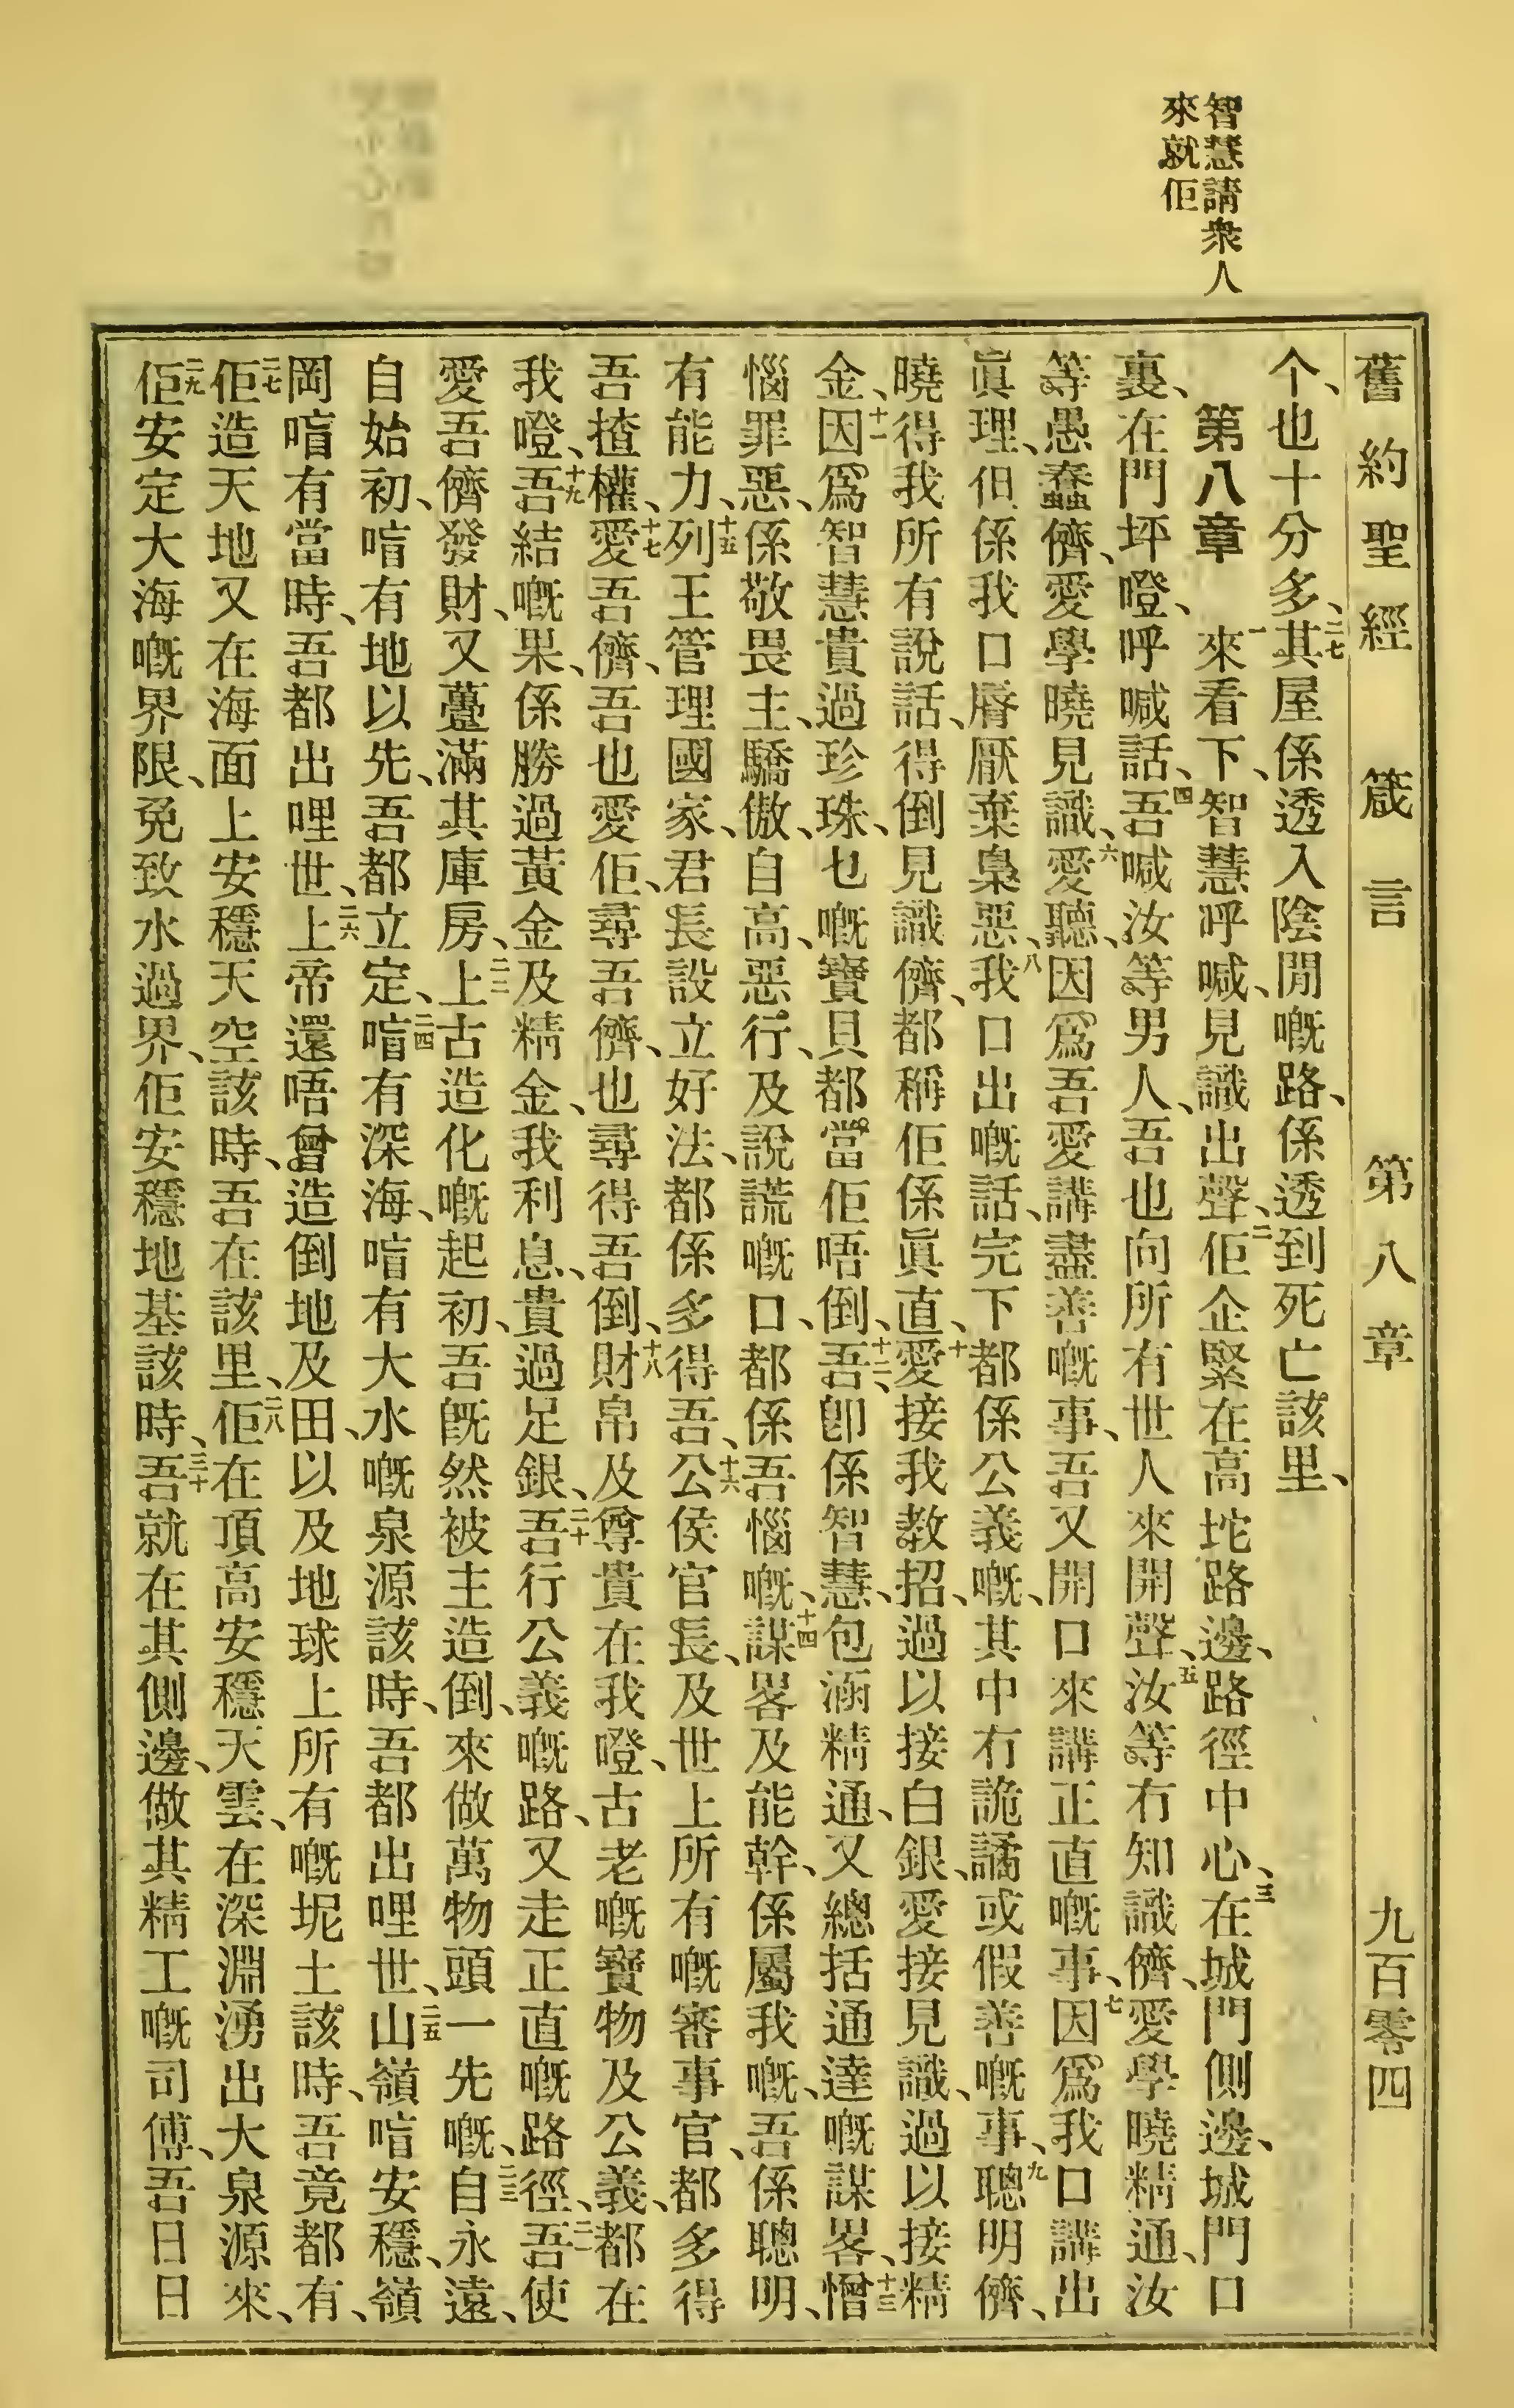 智慧請衆人
來就佢
舊約聖經 箴言 第八章 九百零四
个、也十分多、二七其屋係透入陰間嘅路、係透到死亡該里、
第八章 一來看下、智慧呼喊、見識出聲、二佢企緊在高坨路邊、路徑中心、三在城門側邊、城門口
裏、在門坪嶝、呼喊話、四吾喊汝等男人、吾也向所有世人來開聲、五汝等冇知識儕、愛學曉精通、汝
等愚蠢儕、愛學曉見識、六愛聽、因爲吾愛講盡善嘅事、吾又開口來講正直嘅事、七因爲我口講出
眞理、但係我口脣厭棄梟惡、八我口出嘅話、完下都係公義嘅、其中冇詭譎或假善嘅事、九聰明儕、
曉得我所有說話、得倒見識儕、都稱佢係眞直、十愛接我教招、過以接白銀、愛接見識、過以接精
金、十一因爲智慧貴過珍珠、乜嘅寶貝都當佢唔倒、十二吾卽係智慧、包涵精通、又總括通達嘅謀畧、十三憎
惱罪惡、係敬畏主、驕傲、自高、惡行、及說謊嘅口、都係吾惱嘅、十四謀畧及能幹、係屬我嘅、吾係聰明、
有能力、十五列王管理國家、君長設立好法、都係多得吾、十六公侯官長、及世上所有嘅審事官、都多得
吾揸權、十七愛吾儕、吾也愛佢、尋吾儕、也尋得吾倒、十八財帛及尊貴在我嶝、古老嘅寶物及公義、都在
我嶝、十九吾結嘅果、係勝過黃金及精金、我利息、貴過足銀、二十吾行公義嘅路、又走正直嘅路徑、二一吾使
愛吾儕發財、又躉滿其庫房、二二上古造化嘅起初、吾旣然被主造倒、來做萬物頭一先嘅、二三自永遠、
自始初、喑有地以先、吾都立定、二四喑有深海、喑有大水嘅泉源該時、吾都出哩世、二五山嶺喑安穩、嶺
岡喑有當時、吾都出哩世、二六上帝還唔曾造倒地及田、以及地球上所有嘅坭土該時、吾竟都有、
二七佢造天地又在海面上安穩天空該時、吾在該里、二八佢在頂高安穩天雲、在深淵湧出大泉源來、
二九佢安定大海嘅界限、免致水過界、佢安穩地基該時、三十吾就在其側邊、做其精工嘅司傅、吾日日